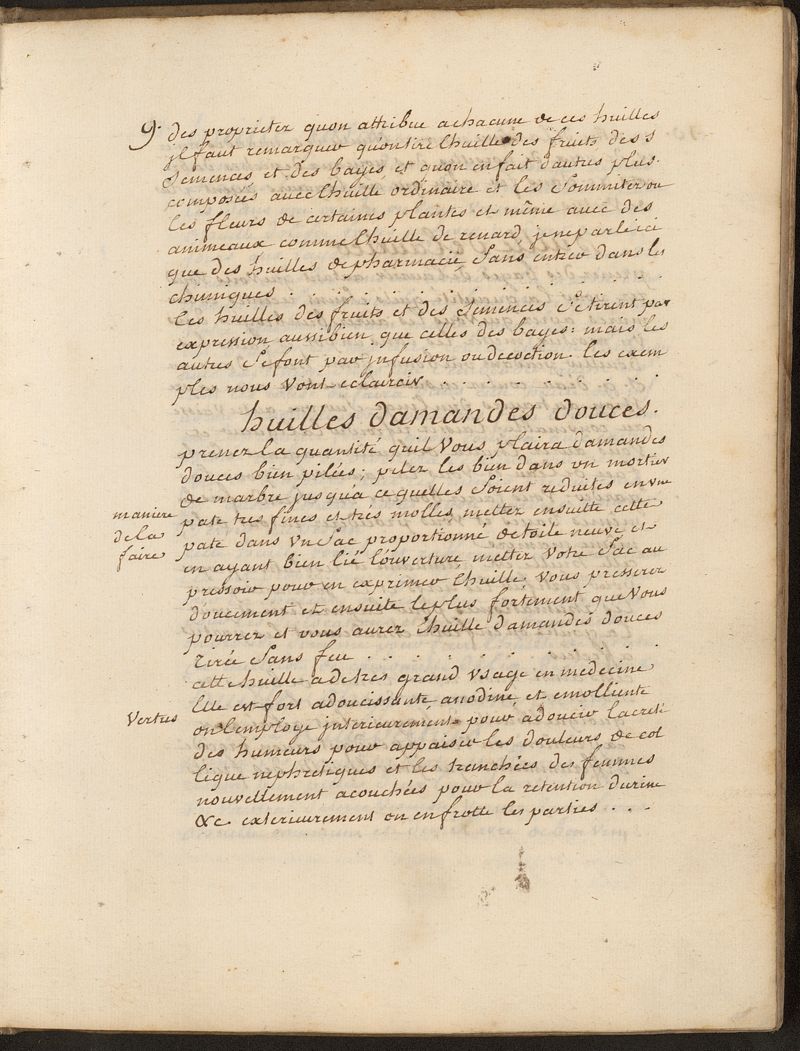 9. des proprietez quon attribue a chacune de ces huilles
jl faut remarquer quon tire lhuille des fruits des s
semences et des bayes, et quon en fait dautres plus
composées avec lhuille ordinaire et les sommitez ou
les fleurs de certaines plantes et même avec des
animeaux comme lhuille de renard, je ne parle ici
que des huilles de pharmacie, sans entrer dans les
chimiques . . . . . . . . . . . .
les huilles des fruits et des semences se tirent par
expression aussi bien que celles des bayes: mais les
autres se font par jnfusion ou decoction. les exem
ples nous vont eclaircir . . . . . . . .
huilles damandes douces.
prenez la quantité quil vous plaira damandes
douces bien pilées; pilez les bien dans un mortier
de marbre jusqua ce quelles soient reduites en une
maniere de la faire
pate tres fines et trés molles, mettez ensuite cette
pate dans un sac proportionné de toile neuve et
en ayant bien lié louverture mettez votre sac au
pressoir pour en exprimer lhuille, vous presserez
doucement et ensuite le plus fortement que vous
pourrez et vous aurez lhuille damandes douces
tirée sans feu . . . . . . . . .
cette huille a de tres grand usage en medecine
Elle est fort adoucissante anodine, et emolliente
Vertus
on lemploye jnterieurement pour adoucir lacreté
des humeurs pour appaiser les douleurs de col
lique nephretiques et les tranchées des femmes
nouvellement acouchées pour la retention durine
&c exterieurement on en frotte les parties . . .